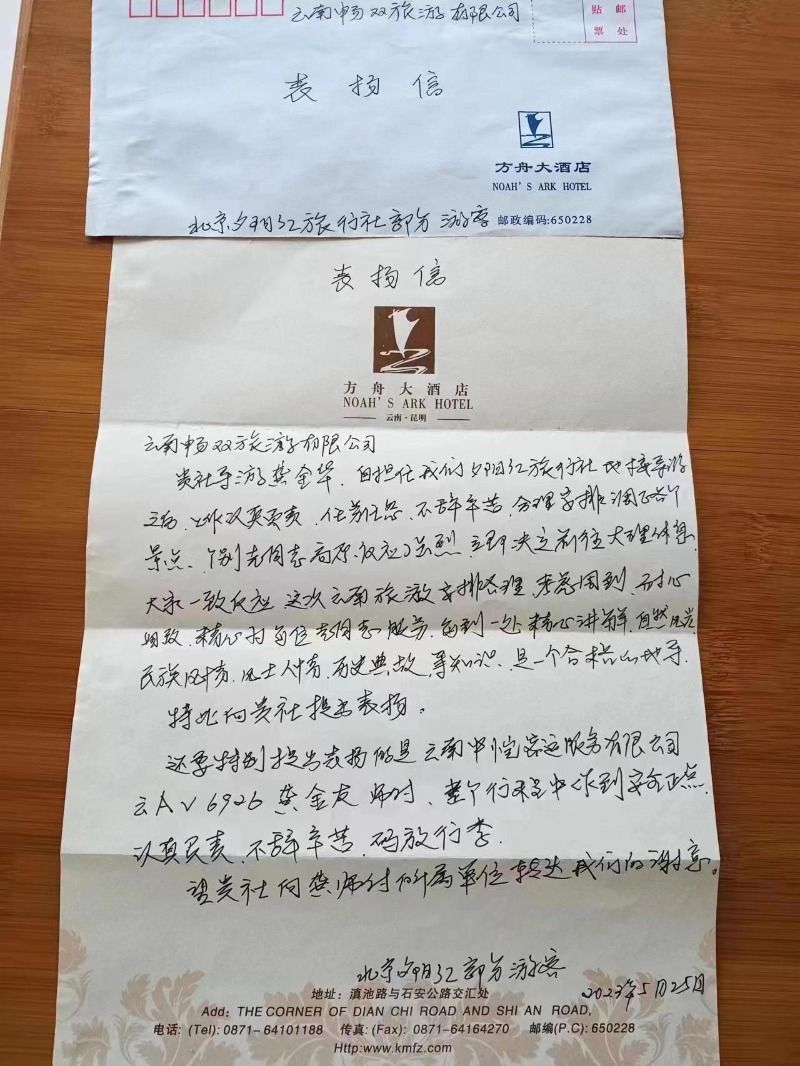 云南畅双旅游有限公司
贴 邮
票 处
表 扬 信
方舟大酒店
NOAH'S ARK HOTEL
北京夕阳红旅行社部分 游客
邮政编码:650228
表 扬 信
方舟大酒店
NOAH'S ARK HOTEL
云南·昆明
云南畅双旅游有限公司
贵社导游龚金华、自担任我们夕阳红旅行社地接导游
工作认真负责、任劳任怨、不辞辛苦、合理安排调正各个
景点、个别老同志高原反应强烈 立即决定前往大理休息
大家一致反应 这次云南旅游安排合理 来慈周到、耐心
细致、精心为每位老同志服务、每到一处 精心讲解、自然风光
民族风情、风土人情、历史典故、等知识、是一个合格的地导、
特此向贵社提出表扬。
还要特别提出表扬的是 云南中恺客运服务有限公司
云AV6926 龚金友 师付、整个行程中作到安全正点、
认真负责、不辞辛苦、码放行李、
望贵社向龚师付所属单位转达我们的谢意。
北京夕阳红部分游客
2023年5月25日
地址: 滇池路与石安公路交汇处
Add: THE CORNER OF DIAN CHI ROAD AND SHI AN ROAD,
电话: (Tel): 0871-64101188 传真: (Fax): 0871-64164270 邮编(P.C): 650228
Http:www.kmfz.com